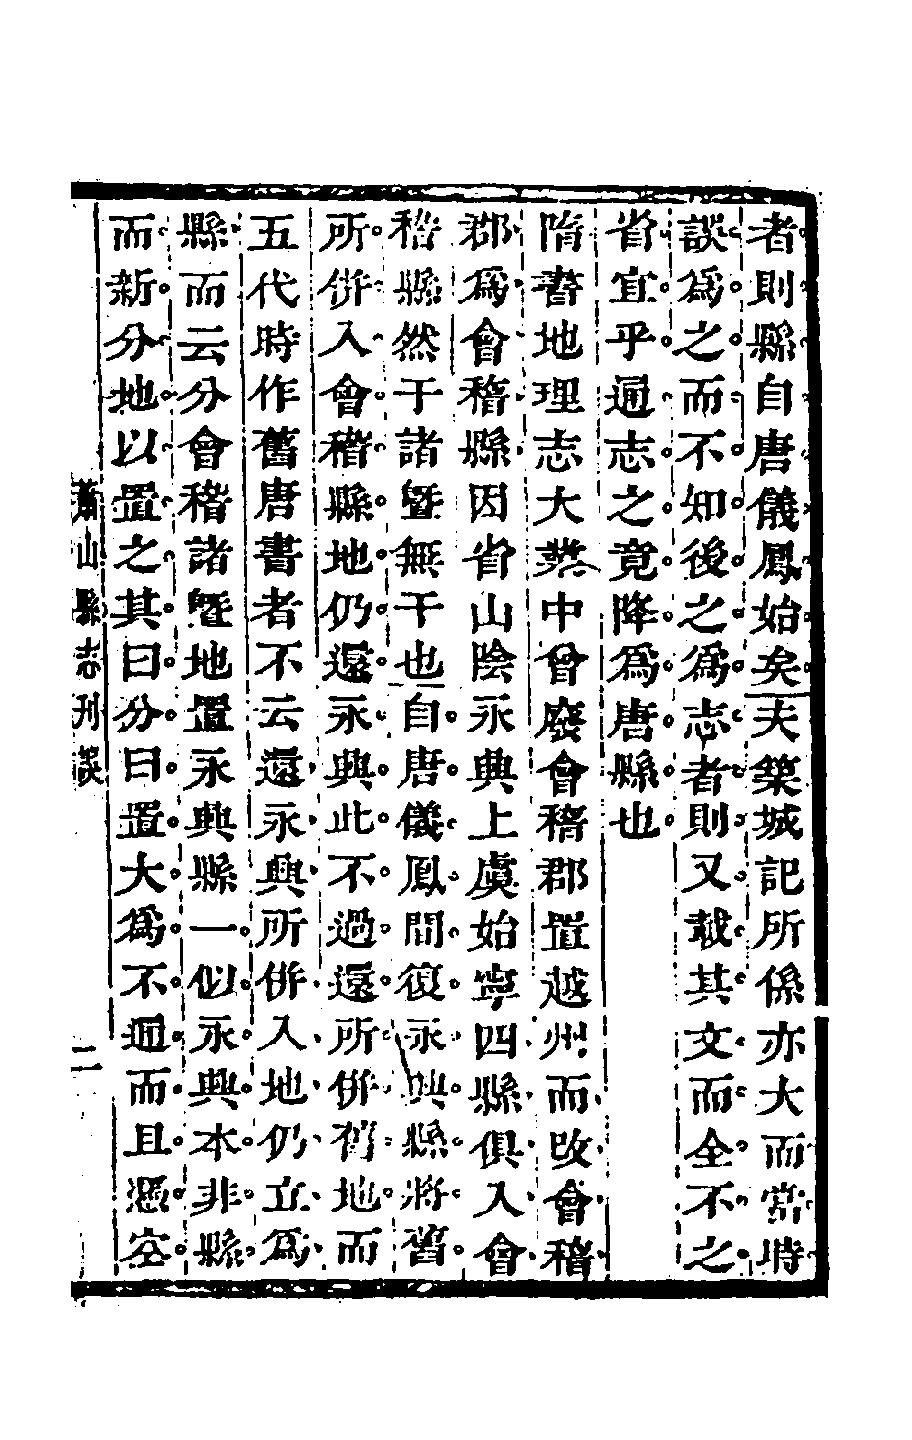 者則縣自唐儀鳳始矣夫築城記所係亦大而當時
誤爲之而不知後之爲志者則又載其文而全不之
省宜乎通志之竟降爲唐縣也
隋書地理志大業中曾廢會稽郡置越州而改會稽
郡爲會稽縣因省山陰永興上虞始寧四縣俱入會
稽縣然于諸曁無干也自唐儀鳳間復永興縣將舊
所併入會稽縣地仍還永興此不過還所併舊地而
五代時作舊唐書者不云還永興所併入地仍立爲
縣而云分會稽諸曁地置永興縣一似永興本非縣
而新分地以置之其曰分曰置大爲不通而且憑空
蕭山縣志刊誤
二